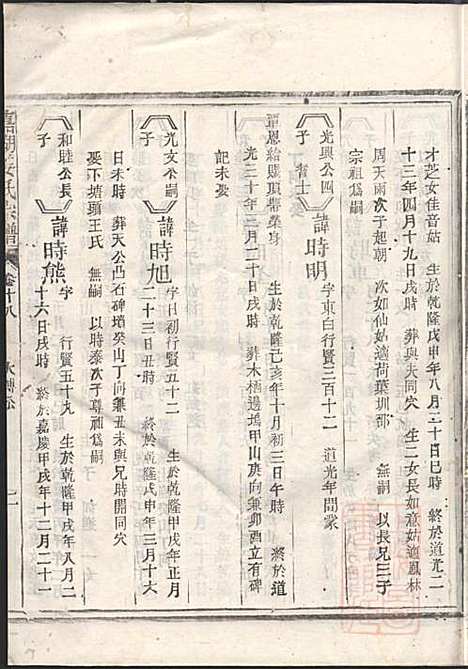 才芝女佳音姑　生於乾隆戊申年八月三十日巳時　終於道光二
十三年四月十九日戌時　葬與夫同穴　生二女長如意姑適鳳林
周天雨次子起朝　次如仙姑適荷葉圳鄒　無嗣　以長兄三子
宗祖爲嗣
光興公四子
諱時明
字東白行賢三百十二　道光年間蒙
覃恩給賜頂帶榮身　生於乾隆己亥年十月初三日午時　終於道
光二十年三月二十日戌時　葬木梅邊塢甲山庚向兼卯酉立有碑
記未娶
光文公嗣子
諱時旭
字日初行賢五十二　生於乾隆甲戌年正月
二十三日丑時　終於乾隆戊申年三月十六
日未時　葬天公凸石碑墦癸山丁向兼丑未與兄時開同穴
娶下塘頭王氏　無嗣　以時泰次子尊祖爲嗣
和睦公長子
諱時熊
字　行賢五十九　生於乾隆甲戌年八月二
十六日戌時　終於嘉慶甲戌年十二月二十一
氏宗譜
卷十八